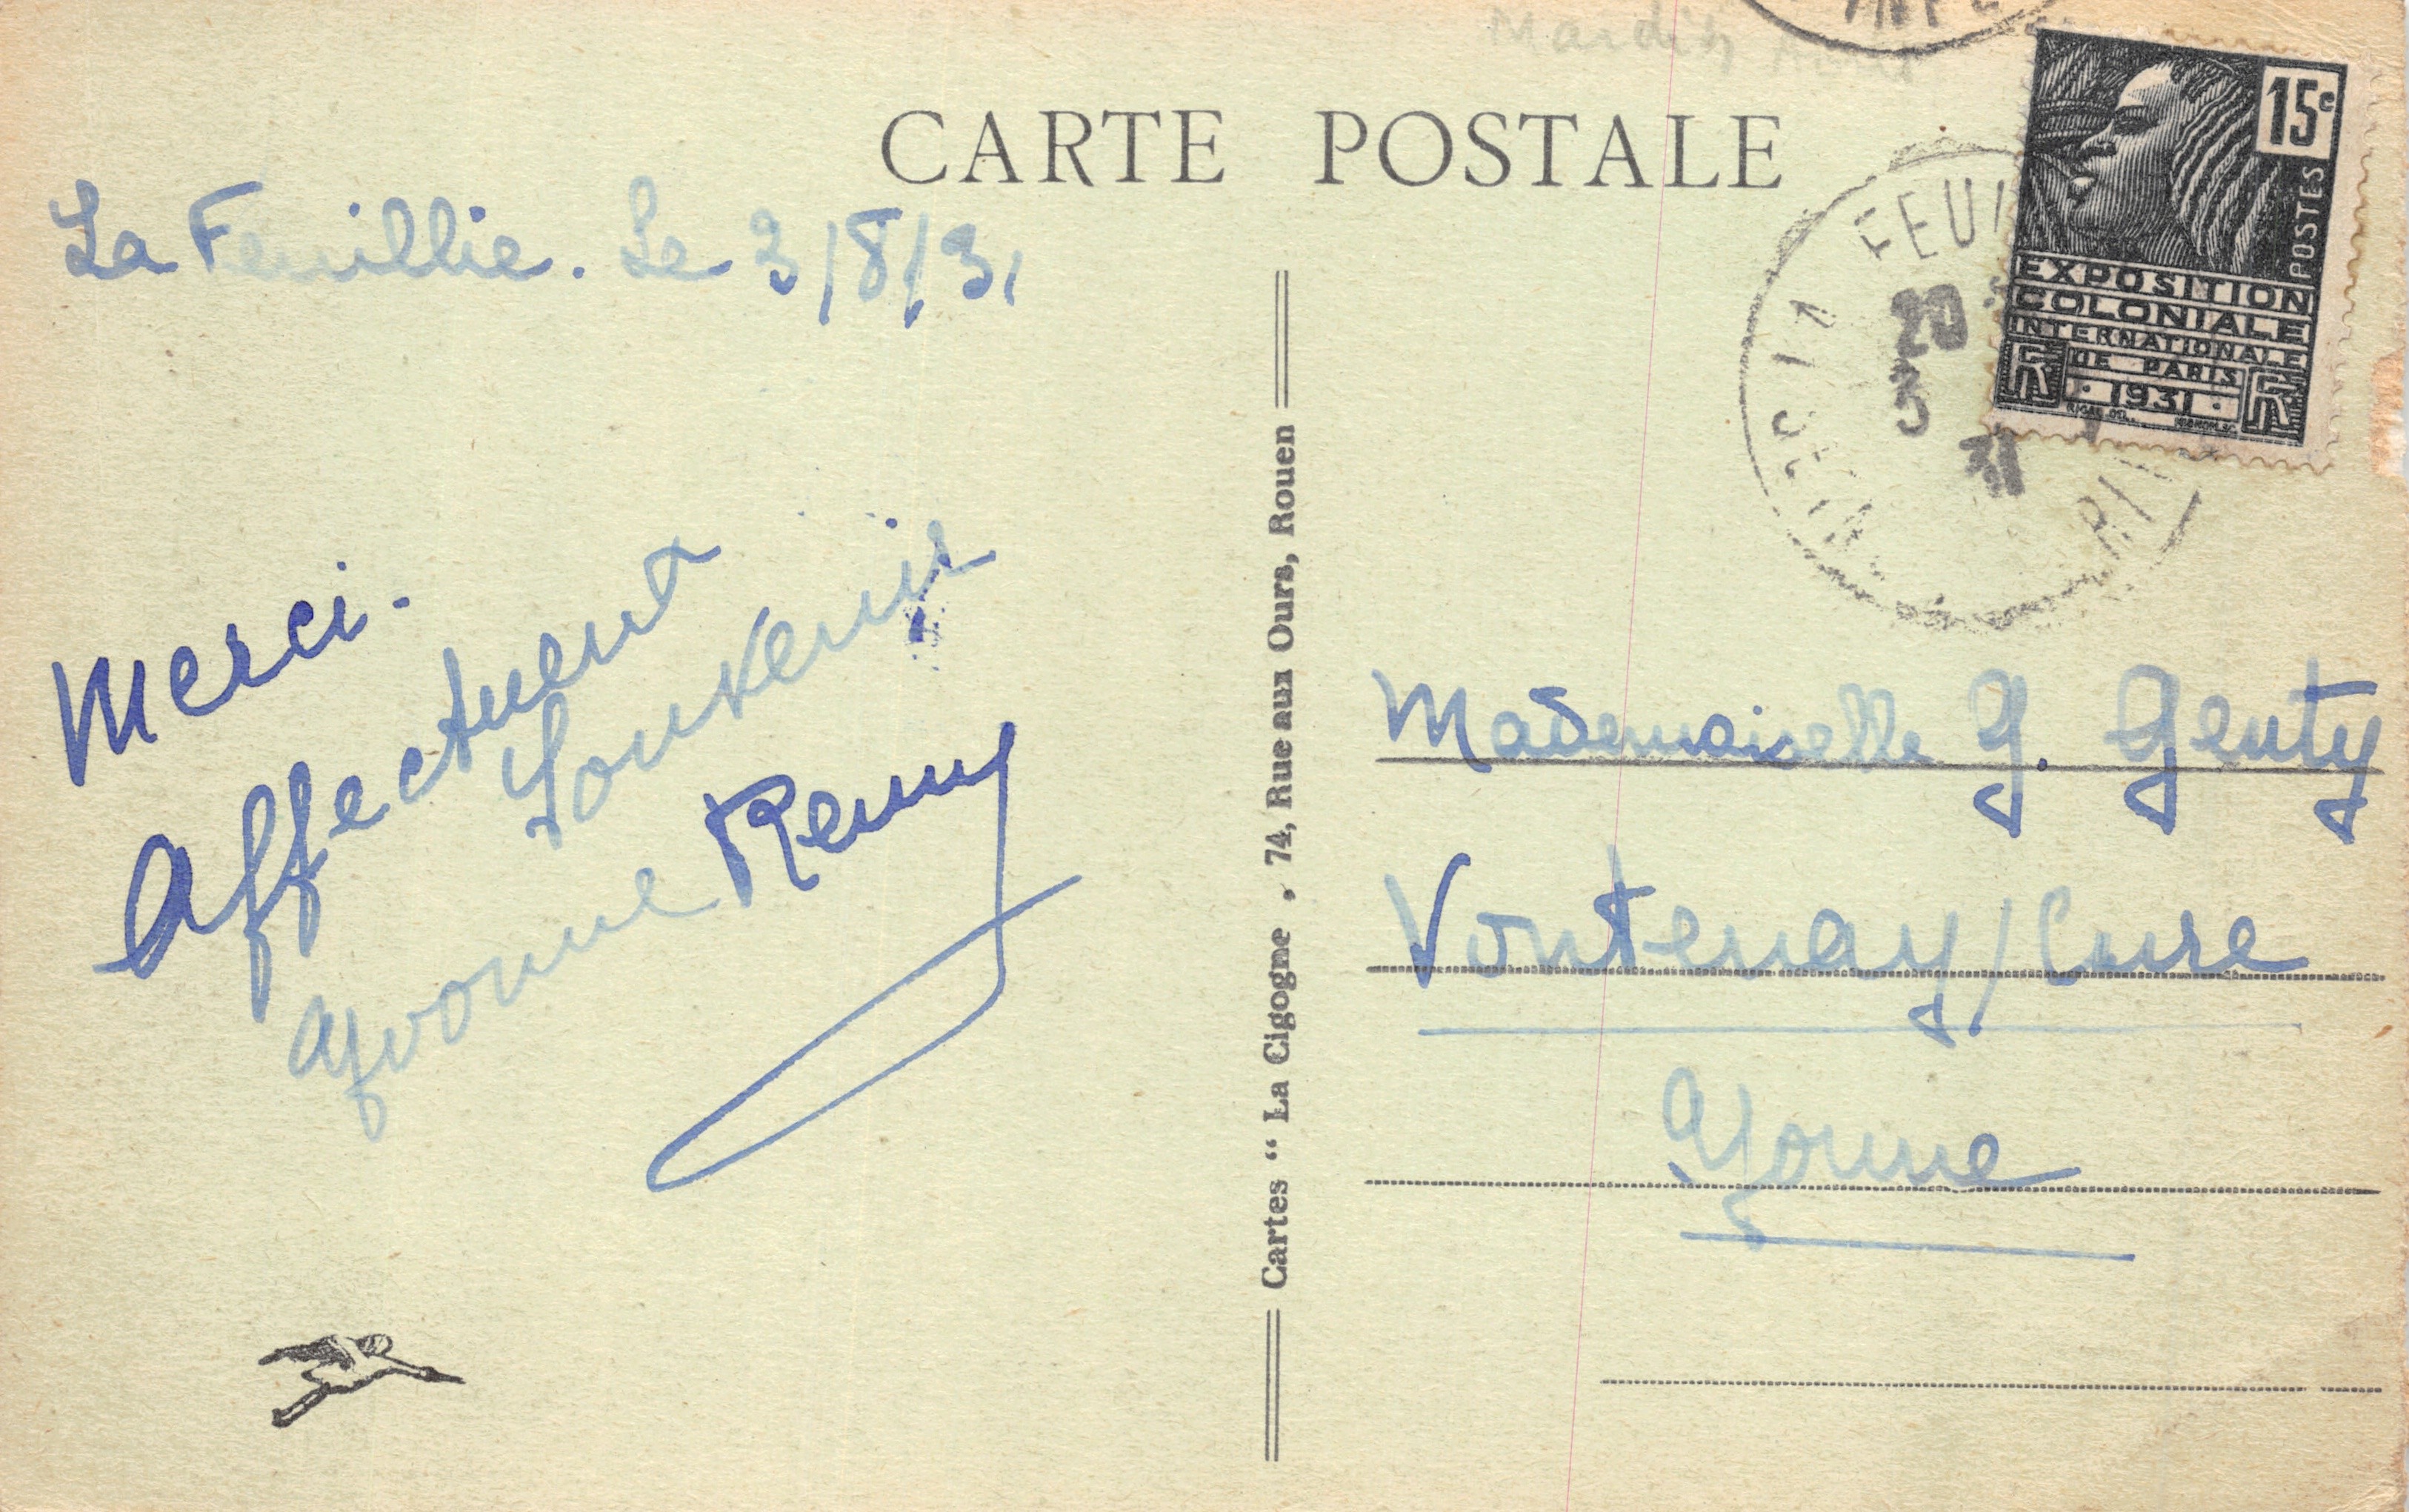 CARTE POSTALE
La Feuillie. Le 3/8/31
Merci.
Affectuent
Souvenir
Yvonne Remy
Cartes “ La Cigogne , 74, Rue aux Ours, Rouen
15c
POSTES
EXPOSITION
COLONIALE
INTERNATIONALE
DE PARIS
1931
RF RF
FEUI
20
3
31
Mademoiselle G. Genty
Voutenay/Cure
Yonne